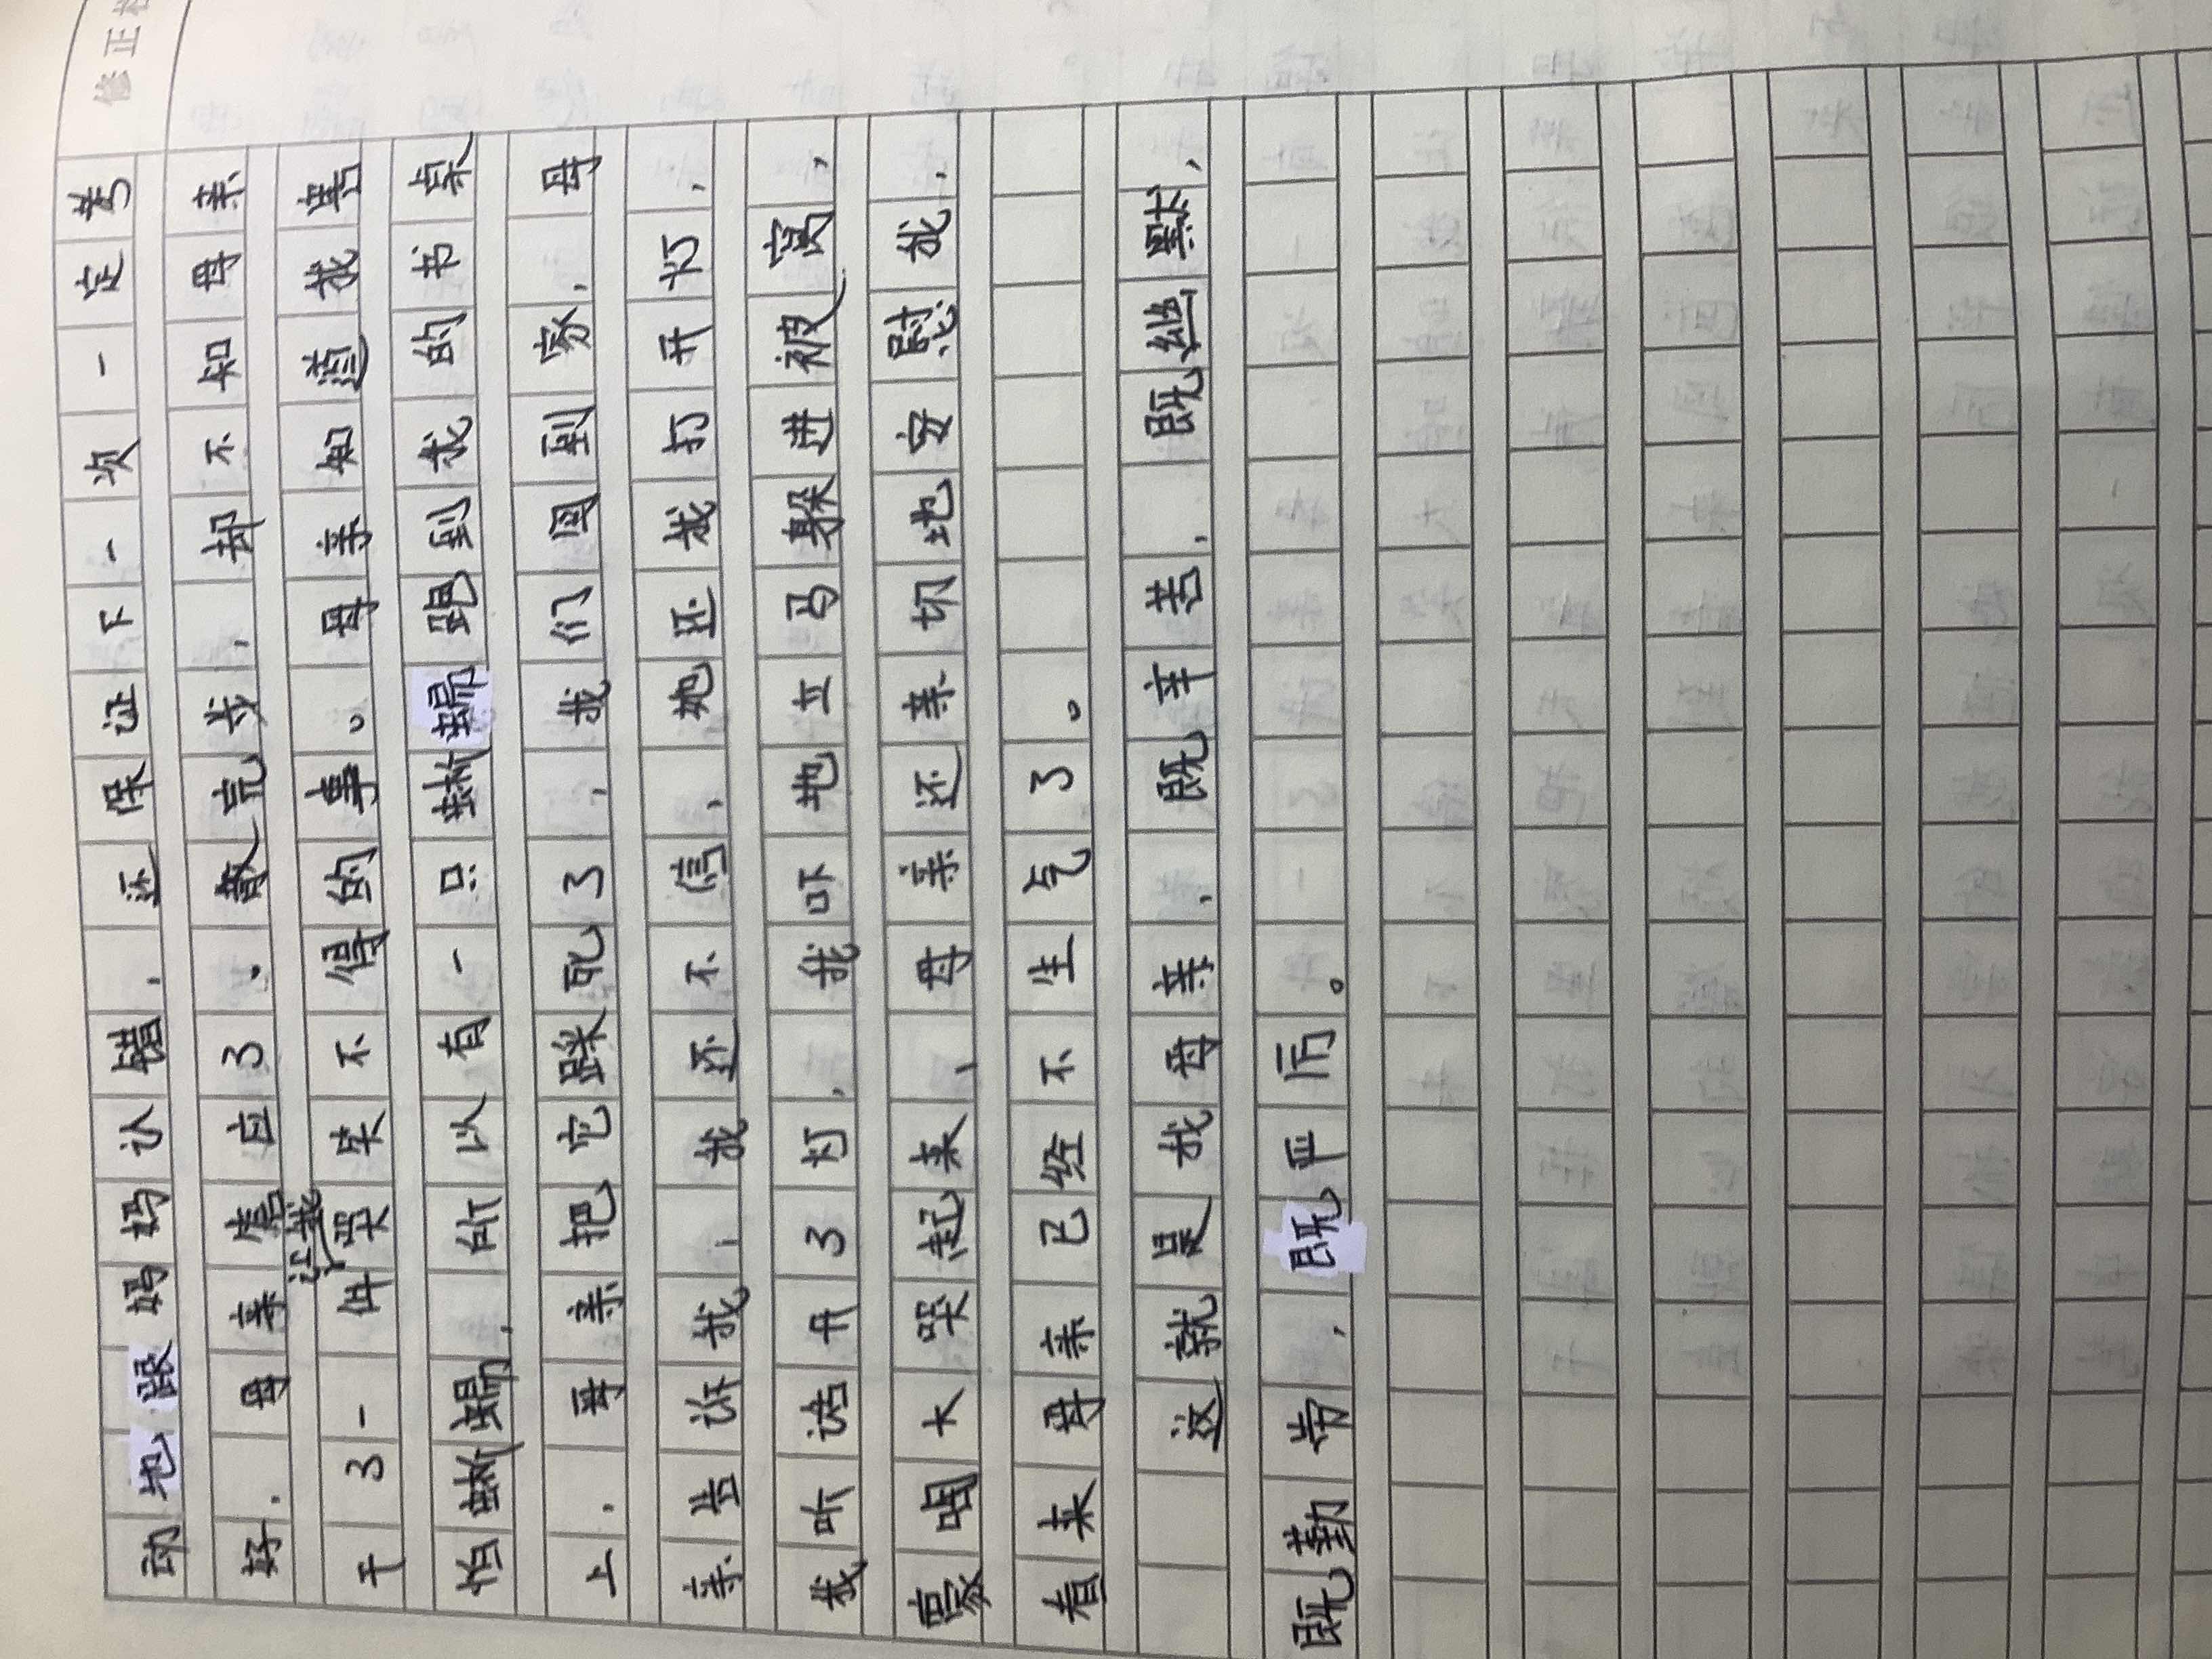 修正
动地跟妈妈认错,还保证下一次一定考
好,母亲应了、散完步,却不知母亲
干了一件让我哭笑不得的事。母亲知道我害
怕蜥蜴,所以有一只蜥蜴跑到我的书桌
上,母亲把它踩死了,我们回到家,母
亲告诉我,我还不信,她还我打开灯,
我听话开了灯,我吓地立马躲进被窝,
嚎啕大哭起来,母亲还亲切地安慰我,
看来母亲已经不生气了。
这就是我母亲,既辛苦,既幽默,
既勤劳,既严厉。